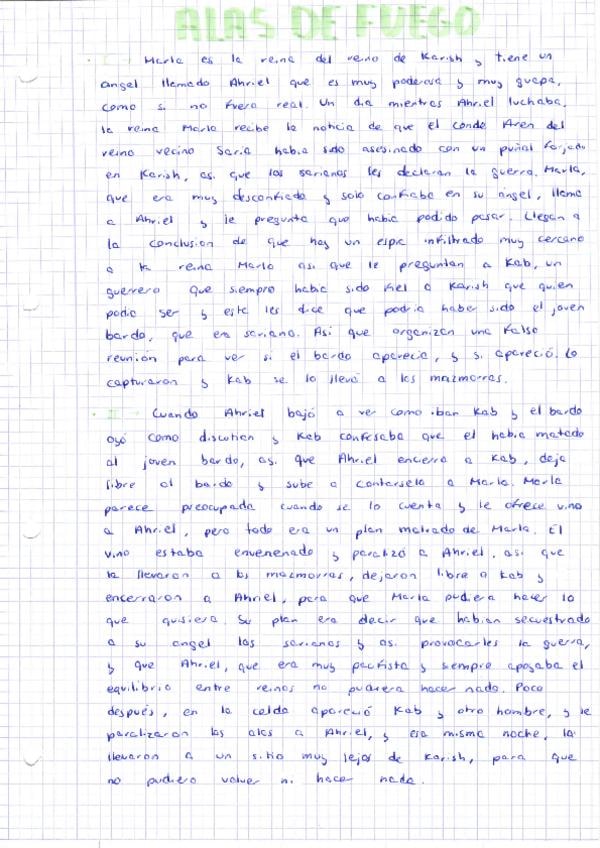 ALAS DE FUEGO
I - Marla es la reina del reino de Karish y tiene un
angel llamado Ahriel que es muy poderosa y muy guapa,
como si no fuera real. Un dia mientras Ahriel luchaba,
la reina Marla recibe la noticia de que el conde Aren del
reino vecino Saria habia sido asesinado con un puñal forjado
en Karish, asi que los sarianos les declaran la guerra. Marla,
que era muy desconfiada y solo confiaba en su angel, llama
a Ahriel y le pregunta que habia podido pasar. Llegan a
la conclusion de que hay un espia infiltrado muy cercano
a la reina Marla asi que le preguntan a Kab, un
guerrero que siempre habia sido fiel a Karish que quien
podia ser y este les dice que podria haber sido el joven
bardo, que era sariano. Asi que organizan una falsa
reunión para ver si el bardo aparecia, y si apareció. Lo
capturaron y Kab se lo llevó a las mazmorras.
II - Cuando Ahriel bajó a ver como iban Kab y el bardo
oyó como discutian y Kab confesaba que el habia matado
al joven bardo, asi que Ahriel encerra a Kab, deja
libre al bardo y sube a contarsela a Marla. Marla
parece preocupada cuando se lo cuenta y le ofrece vino
a Ahriel, pero todo era un plan malvado de Marla. El
vino estaba envenenado y paralizó a Ahriel, asi que
la llevaron a las mazmorras, dejaron libre a Kab y
encerraron a Ahriel, para que Marla pudiera hacer lo
que quisiera. Su plan era decir que habian secuestrado
a su angel los sarianos y asi provocarles la guerra,
y que Ahriel, que era muy pacifista y siempre apoyaba el
equilibrio entre reinos no pudiera hacer nada. Poco
después, en la celda apareció Kab y otro hombre, y le
paralizaron las alas a Ahriel, y esa misma noche, la
llevaron a un sitio muy lejos de Karish, para que
no pudiera volver ni hacer nada.